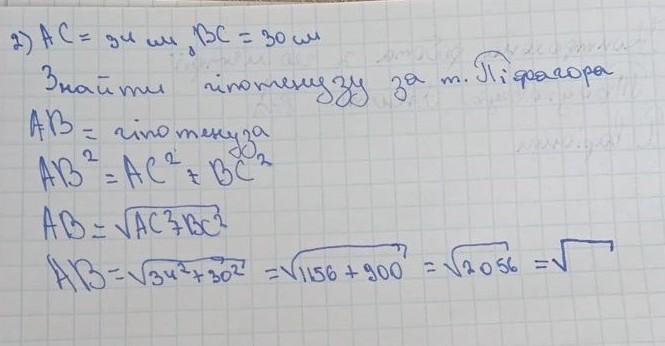 2) AC = 34 см, BC = 30 см
Знайти гіпотенузу за т. Піфагора
AB = гіпотенуза
AB² = AC² + BC²
AB = √AC²+BC²
AB = √34²+30² = √1156 + 900 = √2056 = √